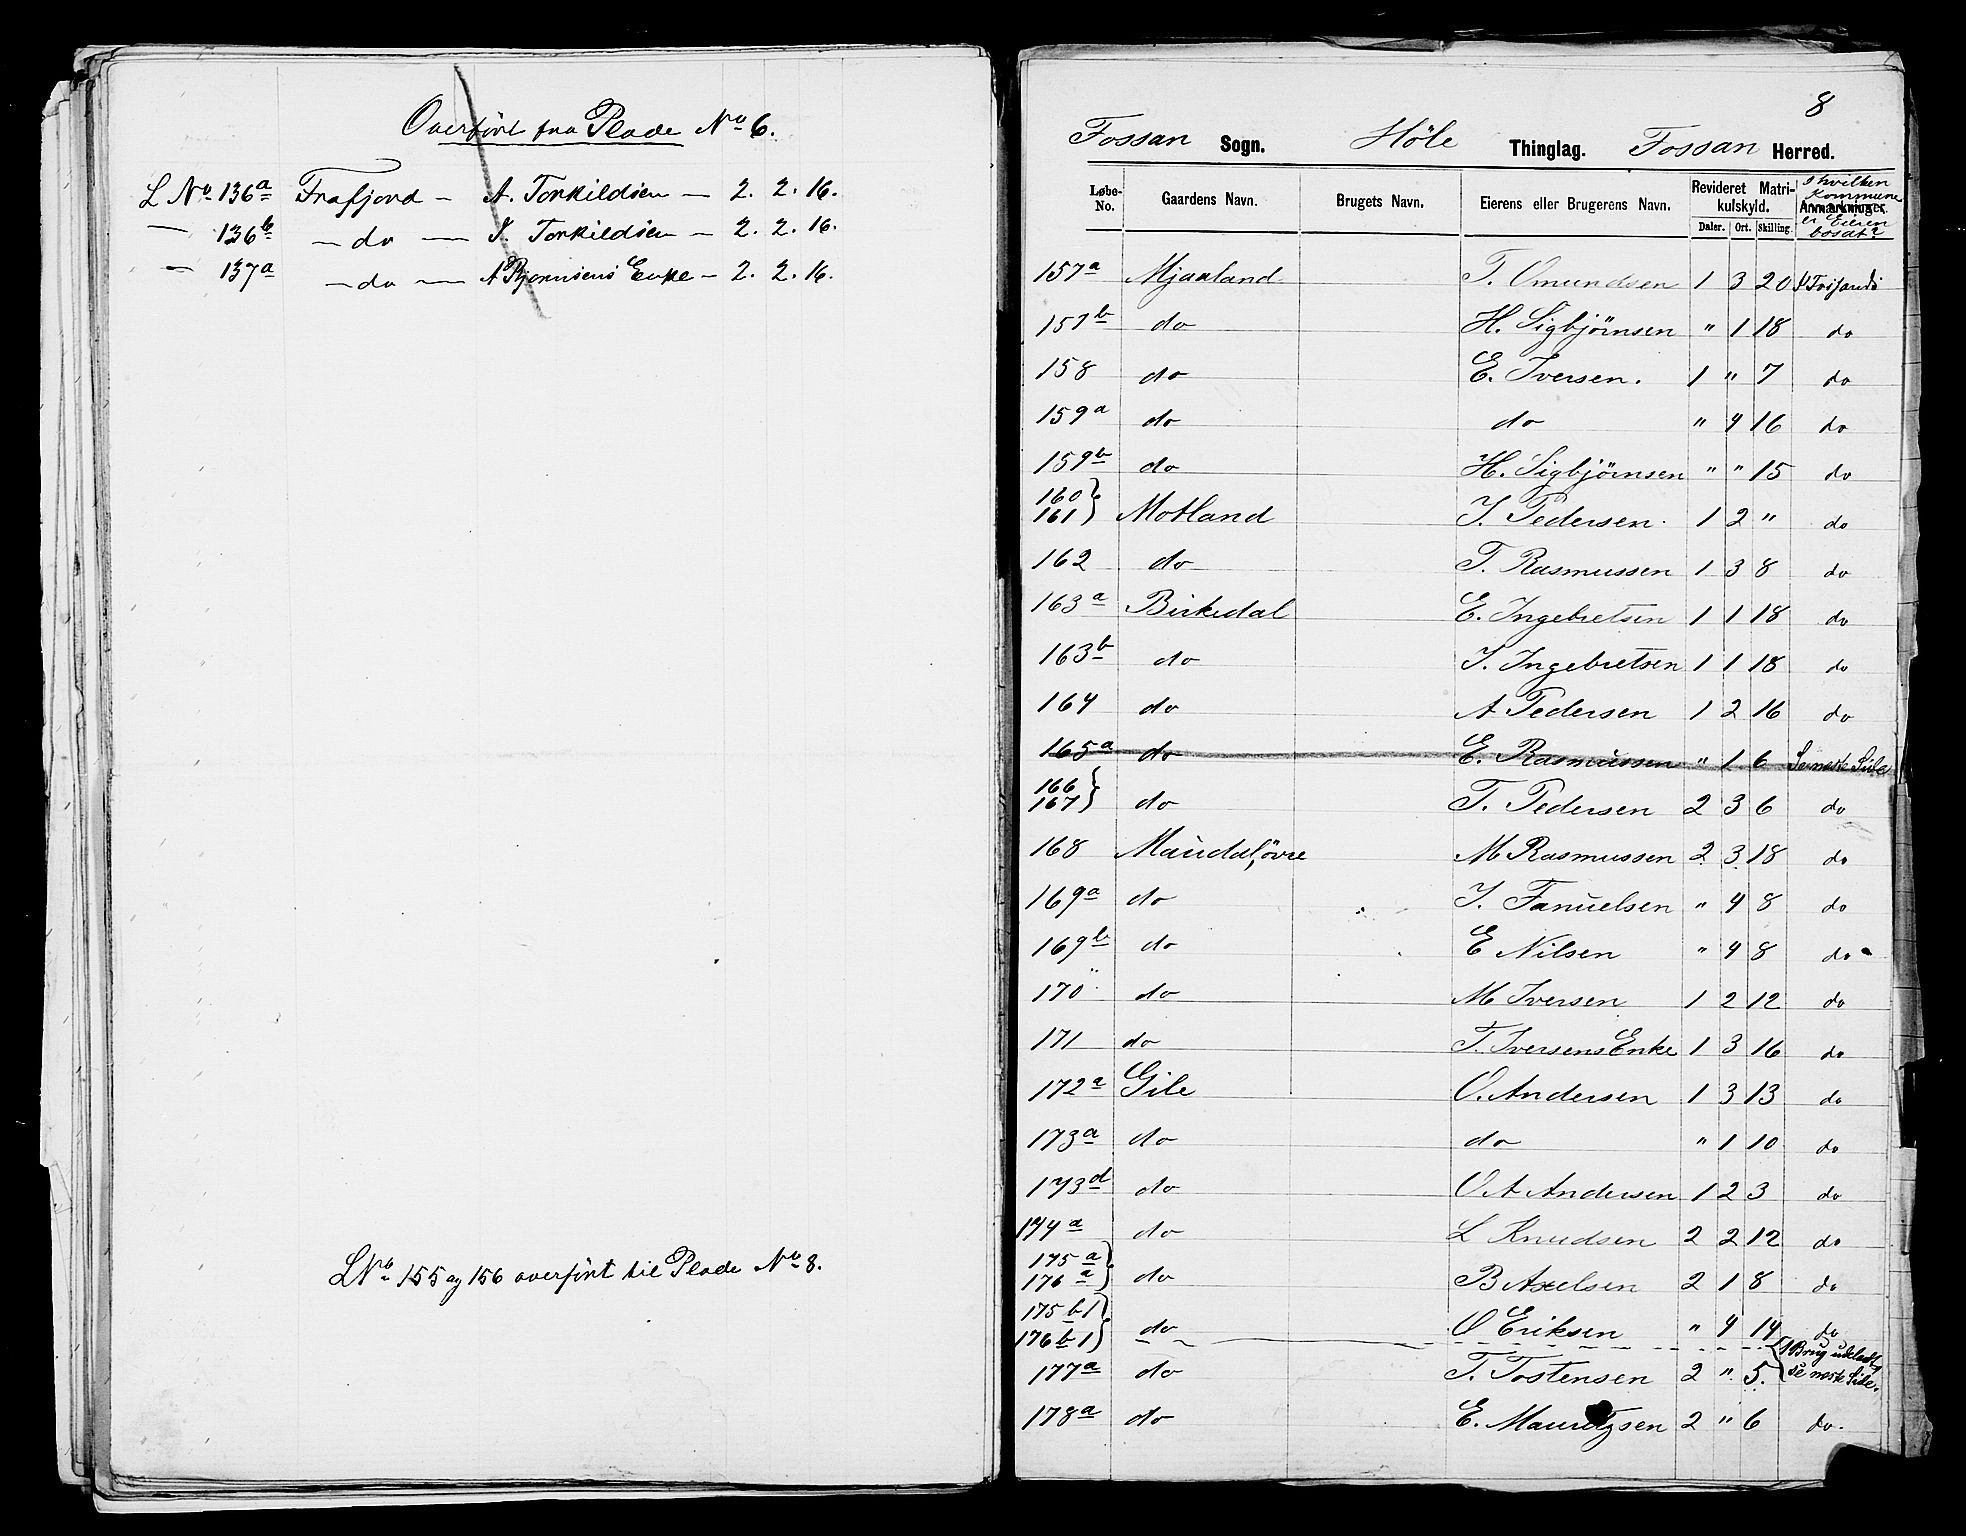 Overført fra Plade No 6.
L No 136a Frafjord – A. Torkildsen – 2. 2. 16.
— 136b – do — T. Torkildsen – 2. 2. 16.
— 137a – do — A Bjørnsens Enke – 2. 2. 16.
LNo 155 og 156 overført til Plade No 8.
8
Fossan Sogn. Höle Thinglag. Fossan Herred.
Løbe-No. Gaardens Navn. Brugets Navn. Eierens eller Brugerens Navn. Revideret Matrikulskyld. Daler. Ort. Skilling. Anmærkninger. I hvilken Kommune er Eieren bosat?
157a Mjaaland T. Omundsen 1 3 20
157b do H. Sigbjörnsen " 1 18 do
158 do E. Iversen. 1 " 7 do
159a do do " 4 16 do
159b do H. Sigbjörnsen " " 15 do
160 161 } Motland I. Pedersen. 1 2 " do
162 do T. Rasmussen 1 3 8 do
163a Birkedal E. Ingebretsen 1 1 18 do
163b do I. Ingebretsen 1 1 18 do
164 do A Pedersen 1 2 16 do
165a do E. Rasmussen " 1 6 Se næste Side
166 167 } do T. Pedersen 2 3 6 do
168 Maudal, övre M Rasmussen 2 3 18 do
169a do I. Fanuelsen " 4 8 do
169b do E Nilsen " 4 8 do
170 do M Iversen 1 2 12 do
171 do T. Iversens Enke 1 3 16 do
172a Gile O. Andersen 1 3 13 do
173a do do " 1 10 do
173d do O A Andersen 1 2 3 do
174a do L Knudsen 2 2 12 do
175a 176a } do B Axelsen 2 1 8 do
175b1 176b1 } do O Eriksen " 4 14 do
177a do T. Tostensen 2 " 5. { 1 Brug udeladt, se næste Side.
178a do E. Mauritzsen 2 " 6 do.